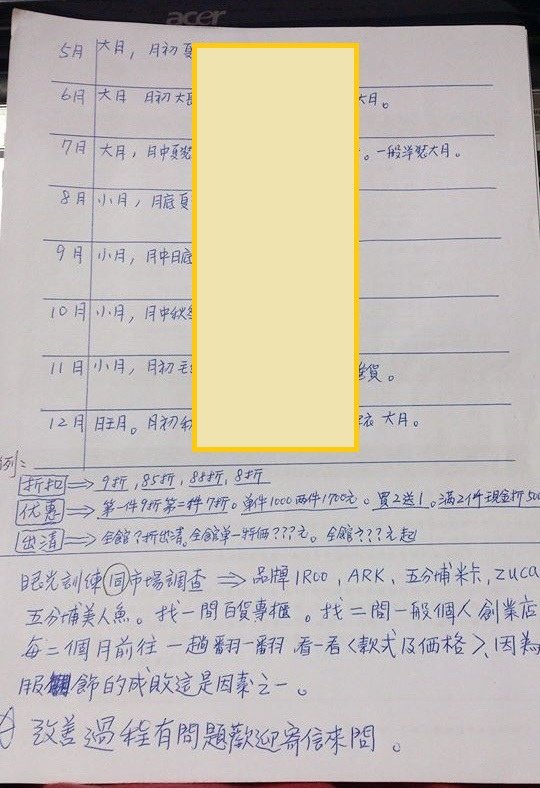 acer
5月 大月，月初夏
6月 大月 月初大 大月。
7月 大月，月中夏裝 。一般洋裝大月。
8月 小月，月底夏
9月 小月，月中日底
10月 小月，月中秋冬
11月 小月，月初毛 雜貨。
12月 旺月。月初秋 大月。
列：
折扣 ⇒ 9折，85折，88折，8折
优惠 ⇒ 第一件9折第一件7折。單件1000兩件1700元。買2送1。滿2件現金折500
出清 ⇒ 全館？折出清，全館單一特価？？？元。全館？？？元起
眼光訓練同市場調查 ⇒ 品牌IROO，ARK、五分埔米卡，ZUCA
五分埔美人魚。找一間百貨專櫃。找二間一般個人創業店
每二個月前往一趟翻一翻 看一看〈款式及価格〉，因為
服飾的成敗這是因素之一。
改善過程有問題歡迎寄信來問。